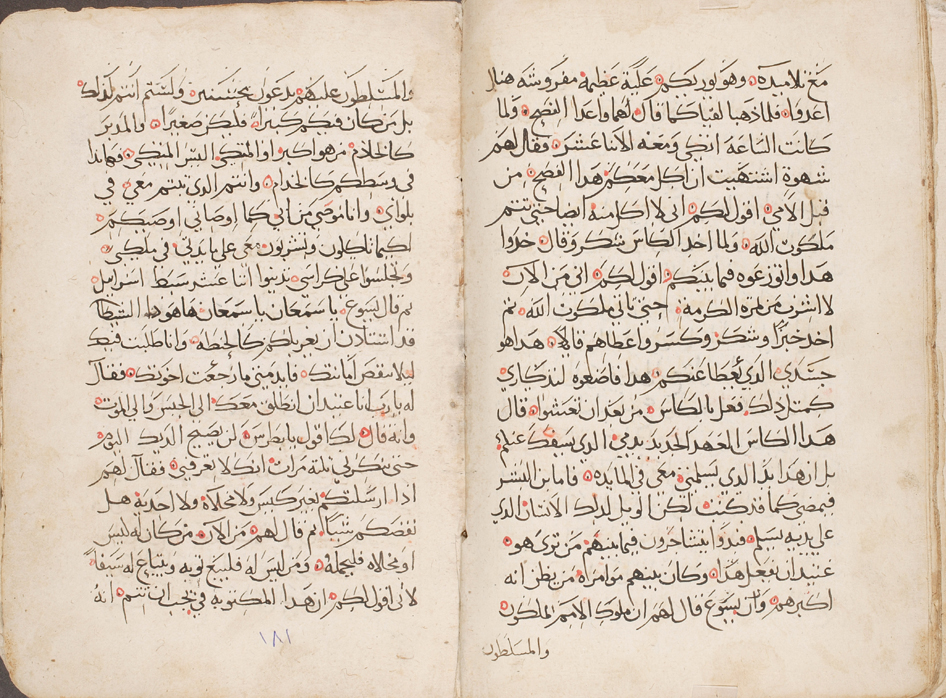 مع تلاميذه وهو يوريكم علية عظيمة مفروشة هنالك
اعدوا فلما ذهبا لقيا كما قال لهما واعدا الفصح ولما
كانت الساعة اتكى ومعه الاثنا عشر وقال لهم
شهوة اشتهيت ان اكل معكم هذا الفصح من
قبل الامي اقول لكم اني لا اكل منه ايضا حتى تتم
ملكوت الله ولما اخد الكاس شكر وقال خدوا
هدا واتوزعوه فيما بينكم اقول لكم اني من الان
لا اشرب من تمرة الكرمة حتى تاتي ملكوت الله ثم
اخد خبزا وشكر وكسر واعطاهم قايلا هدا هو
جسدي الدي يعطا عنكم هدا فاصنعوه لتدكاري
كمثل دلك فعل بالكاس من بعد ان تعشوا قال
هدا الكاس العهد الجديد بدمي الدي يسفك عنكم
بل ان هدا يد الدي يسلمني معي في المايدة فاما بن البشر
فيمضي كما قد كتب لكن الويل لدلك الانسان الدي
على يديه يسلم فبدوا يتشاجرون فيما بينهم من ترى هو
عتيد ان يفعل هدا وكان بينهم موامراة من يظن انه
اكبرهم وان يسوع قال لهم ان ملوك الامم تملكون
والمسلطون
والمتسلطون عليهم يدعون محسنين ولستم انتم كدلك
بل من كان فيكم كبيرا فليكن صغيرا والمدبر
كالخادم من هو اكبر اوالمتكي اليس المتكي فهانذا
في وسطكم كالخادم وانتم الدي ثبتم معي في
بلواي وانا موصي من ابي كما اوصاني اوصيكم
لكيما تاكلون وتشربون معي على مايدتي في ملكي
وتجلسوا على كراسي تدينوا اثنا عشر سبط اسرايل
ثم قال يسوع يا سمعان يا سمعان ها هودا الشيطان
قد استادن ان يغربلكم كالحنطة وانا طلبت فيك
ليلا ينقص امانتك فايد متى ما رجعت اخوتك فقال
له يارب انا عتيد ان انطلق معك الى الحبس والى الموت
وانه قال لك اقول يا بطرس لن يصيح الديك اليوم
حتى تنكرني ثلثة مرات انك لا تعرفني فقال لهم
ادا ارسلتكم بغير كيس ولا مخلاة ولا احدية هل
نقصكم شيا ثم قال لهم من الان من كان له كيس
او مخلاة فليحمله ومن ليس له فليبيع ثوبه ويبتاع له سيفا
لاني اقول لكم ان هدا المكتوبة في يجب ان تتم انه
١٨١